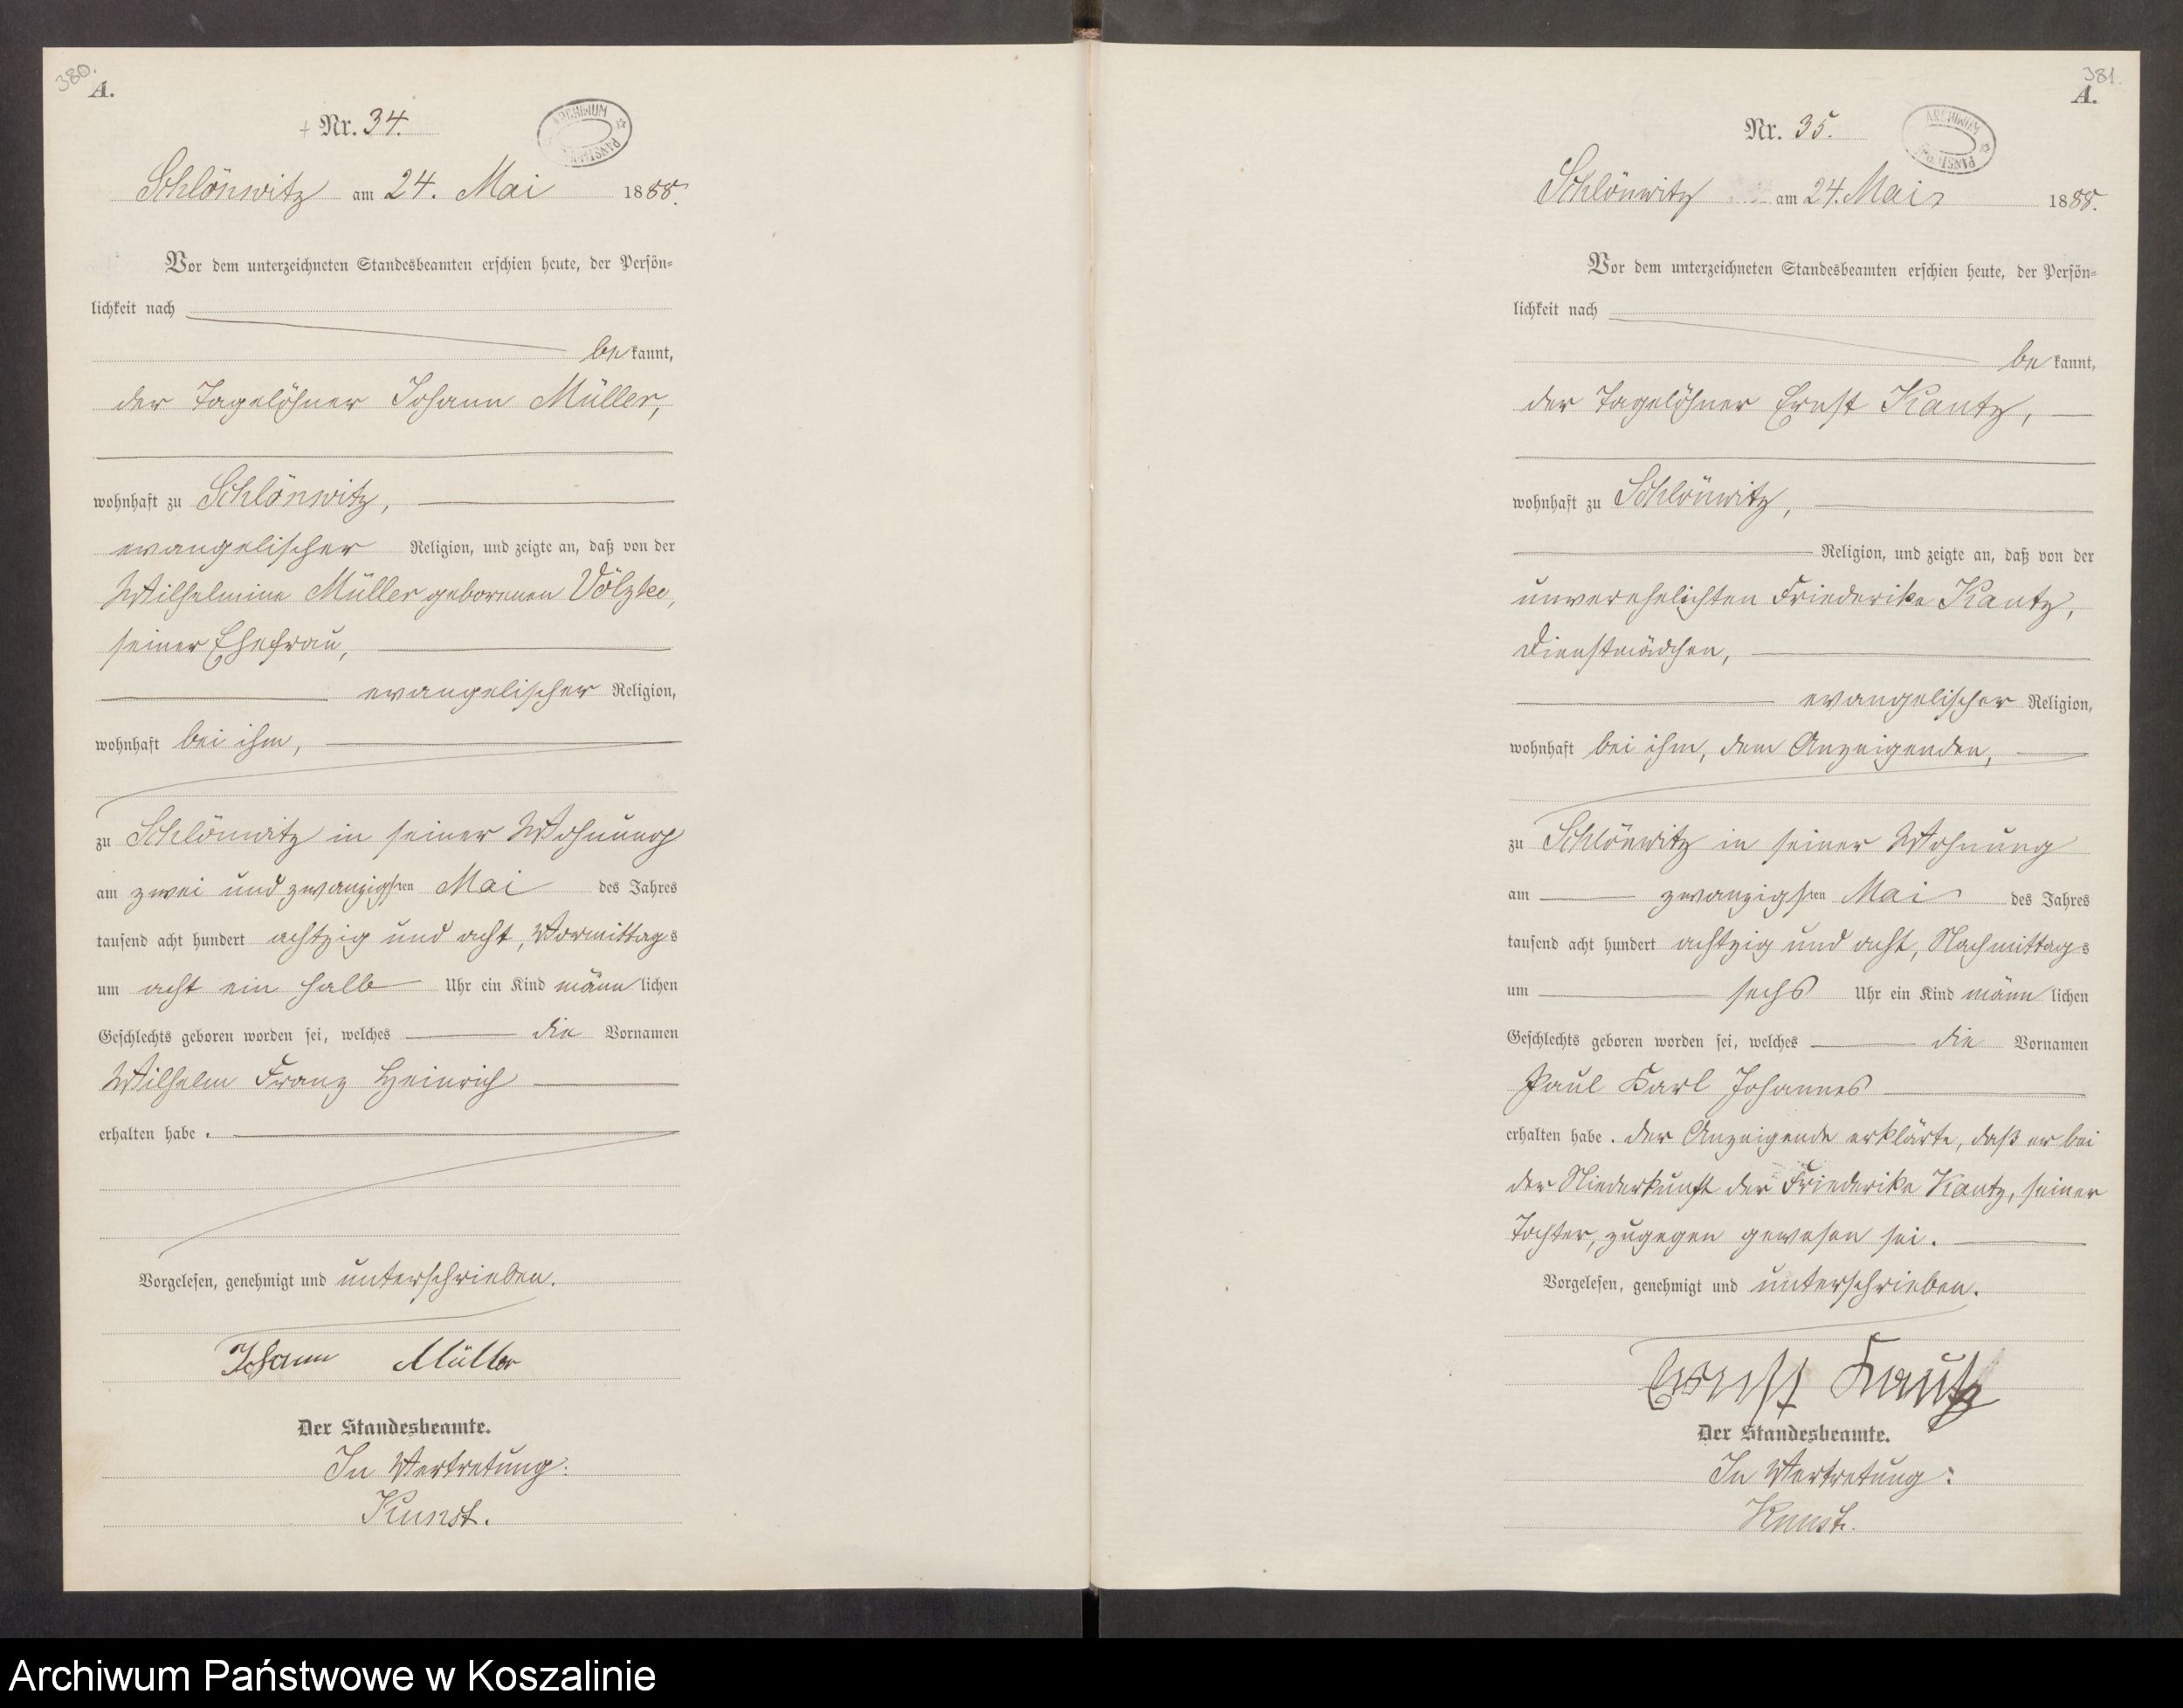 380.
A.
+ Nr. 34.
ARCHIWUM PAŃSTW
Schlönwitz am 24. Mai 1888.
Vor dem unterzeichneten Standesbeamten erschien heute, der Persön-
lichkeit nach
be kannt,
der Tagelöhner Johann Müller,
wohnhaft zu Schlönwitz,
evangelischer Religion, und zeigte an, daß von der
Wilhelmine Müller geborenen Völzke,
seiner Ehefrau,
evangelischer Religion,
wohnhaft bei ihm,
zu Schlönwitz in seiner Wohnung
am zwei und zwanzigsten Mai des Jahres
tausend acht hundert achtzig und acht, Vormittags
um acht ein halb Uhr ein Kind männlichen
Geschlechts geboren worden sei, welches die Vornamen
Wilhelm Franz Heinrich
erhalten habe.
Vorgelesen, genehmigt und unterschrieben.
Johann Müller
Der Standesbeamte.
In Vertretung:
Kunst.
381.
A.
Nr. 35.
ARCHIWUM PAŃSTW
Schlönwitz am 24. Mai 1888.
Vor dem unterzeichneten Standesbeamten erschien heute, der Persön-
lichkeit nach
be kannt,
der Tagelöhner Ernst Kautz,
wohnhaft zu Schlönwitz,
Religion, und zeigte an, daß von der
unverehelichten Friederike Kautz,
Dienstmädchen,
evangelischer Religion,
wohnhaft bei ihm, dem Anzeigenden,
zu Schlönwitz in seiner Wohnung
am zwanzigsten Mai des Jahres
tausend acht hundert achtzig und acht, Nachmittags
um sechs Uhr ein Kind männlichen
Geschlechts geboren worden sei, welches die Vornamen
Paul Karl Johannes
erhalten habe. Der Anzeigende erklärte, daß er bei
der Niederkunft der Friederike Kautz, seiner
Tochter, zugegen gewesen sei.
Vorgelesen, genehmigt und unterschrieben.
Ernst Kautz
Der Standesbeamte.
In Vertretung:
Kunst.
Archiwum Państwowe w Koszalinie